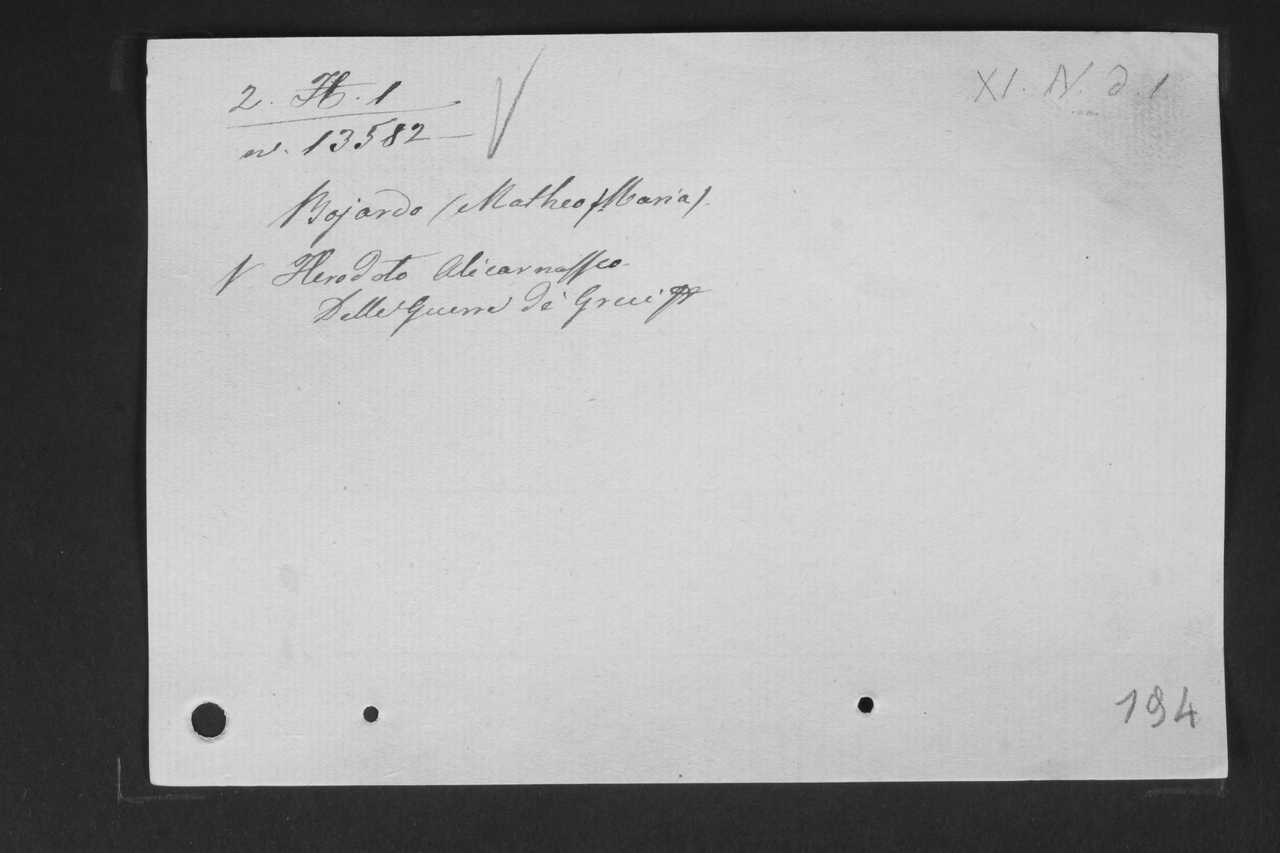 2. H. 1
XI. N. d. 1
n. 13582
Bojardo (Matheo Maria).
V Herodoto Alicarnasseo
Delle Guerre de Greci
194